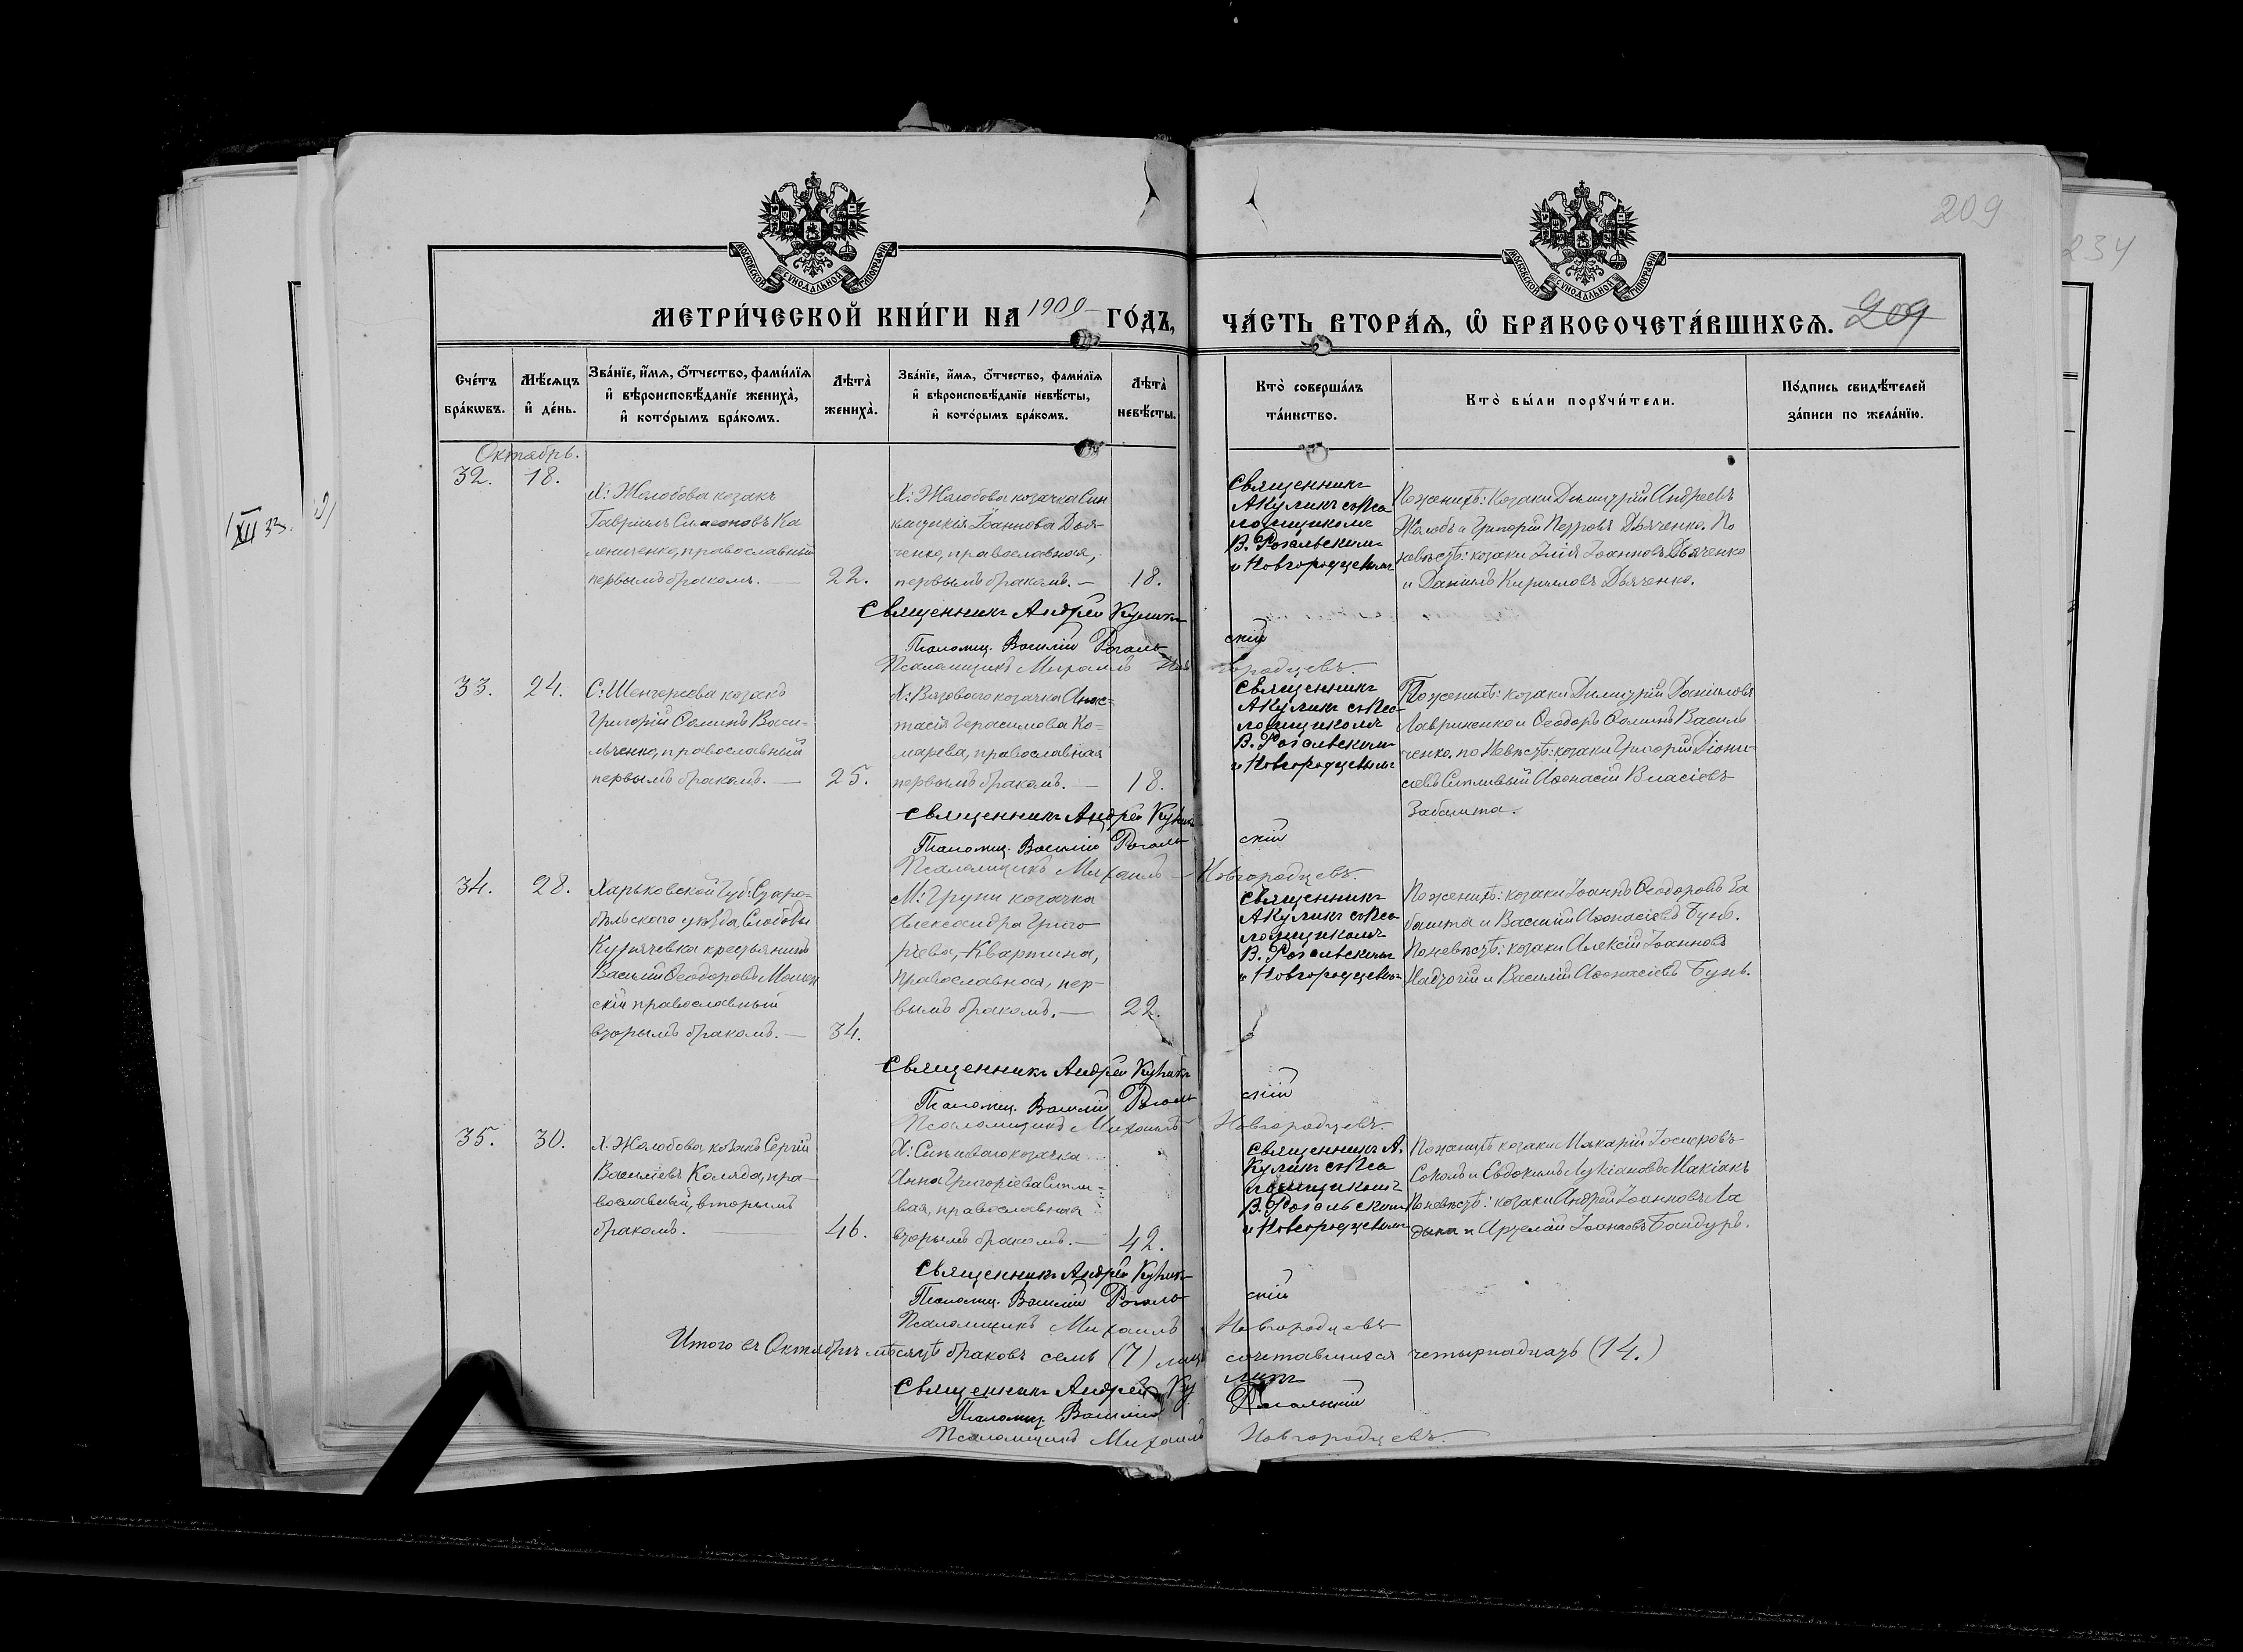 209
234
МОСКОВСКОЙ СѴНОДАЛЬНОЙ ТИПОГРАФІИ
МОСКОВСКОЙ СѴНОДАЛЬНОЙ ТИПОГРАФІИ
МЕТРИ́ЧЕСКОЙ КНИ́ГИ НА 1909 ГО́ДЪ,
ЧА́СТЬ ВТОРА́Ѧ, Ѽ БРАКОСОЧЕТА́ВШИХСѦ. 209
Сче́тъ бра́кѡвъ.
Мѣ́сѧцъ и҆ де́нь.
Зва́нїе, и҆́мѧ, ѻ҆́тчество, фами́лїѧ и҆ вѣроисповѣ́данїе жениха̀, и҆ кото́рымъ бра́комъ.
Лѣта̀ жениха̀.
Зва́нїе, и҆́мѧ, ѻ҆́тчество, фами́лїѧ и҆ вѣроисповѣ́данїе невѣ́сты, и҆ кото́рымъ бра́комъ.
Лѣта̀ невѣ́сты.
Кто̀ соверша́лъ та́инство.
Кто̀ бы́ли порꙋчи́тели.
По́дпись свидѣ́телей за́писи по жела́нїю.
XII 33.
Октябрь.
32. 18.
Х: Жолобова козакъ
Гавріилъ Симеоновъ Ка
лениченко, православный
первымъ бракомъ. — 22.
Х: Жолобова козачка Син
клитикія Іоаннова Дья-
ченко, православная,
первымъ бракомъ. — 18.
Священникъ
А Куликъ съ Пса
ломщикомъ
В. Рогальскимъ
и Новгородцевымъ
По женихѣ: козаки Димитрій Андреевъ
Жолобъ и Григорій Петровъ Дьяченко. По
невѣстѣ: козаки Илія Іоанновъ Дьяченко
и Даніилъ Кирилловъ Дьяченко.
Священникъ Андрей Куликъ
Псаломщ. Василій Рогальскій
Псаломщикъ Михаилъ Новгородцевъ.
33. 24.
С: Шенгереева козакъ
Григорій Ѳоминъ Васи-
льченко, православный
первымъ бракомъ. — 25.
Х: Вязоваго козачка Анас-
тасія Герасимова Ко-
марева, православная
первымъ бракомъ. — 18.
Священникъ
А Куликъ съ Пса-
ломщикомъ
В. Рогальскимъ
и Новгородцевымъ
По женихѣ: козаки Димитрій Даніиловъ
Лавриненко и Ѳеодоръ Ѳоминъ Василь
ченко. по Невѣстѣ: козаки Григорій Діони-
сіевъ Сипливый Аѳанасій Власіевъ
Забашта.
Священникъ Андрей Куликъ
Псаломщ. Василій Рогальскій
Псаломщикъ Михаилъ Новгородцевъ.
34. 28.
Харьковской Губ: Старо-
бѣльскаго уѣзда, Слободы
крестьянинъ
Василій Ѳеодоровъ
скій православный
вторымъ бракомъ. — 34.
М: Груни козачка
Александра Григо
ріева, Квартина,
православная, пер-
вымъ бракомъ. — 22.
Священникъ
А Куликъ съ Пса
ломщикомъ
В. Рогальскимъ
и Новгородцевымъ
По женихѣ: козаки Іоаннъ Ѳеодоровъ За
башта и Василій Аѳанасіевъ Бунь.
По невѣстѣ: козаки Алексій Іоанновъ
Надточій и Василій Аѳанасіевъ Бунь.
Священникъ Андрей Куликъ
Псаломщ. Василій Рогальскій
Псаломщикъ Михаилъ Новгородцевъ.
35. 30.
Х. Жолобова козакъ Сергій
Василіевъ Коляда, пра-
вославный, вторымъ
бракомъ. — 46.
Х: Сипливаго козачка
Анна Григоріева Сипли-
вая, православная
вторымъ бракомъ. — 42.
Священникъ А.
Куликъ съ Пса
ломщикомъ
В. Рогальскимъ
и Новгородцевымъ
По женихѣ козаки Макарій
Соколъ и Евдокимъ Лукіановъ
По невѣстѣ: козаки Андрей Іоанновъ Ла
дыка и Артемій Іоанновъ Бандуръ.
Священникъ Андрей Куликъ
Псаломщ. Василій Рогальскій
Псаломщикъ Михаилъ Новгородцевъ
Итого въ Октябрѣ мѣсяцѣ браковъ семь (7) лицъ сочетавшихся четырнадцать (14.)
Священникъ Андрей Куликъ
Псаломщ. Василій Рогальскій
Псаломщикъ Михаилъ Новгородцевъ.